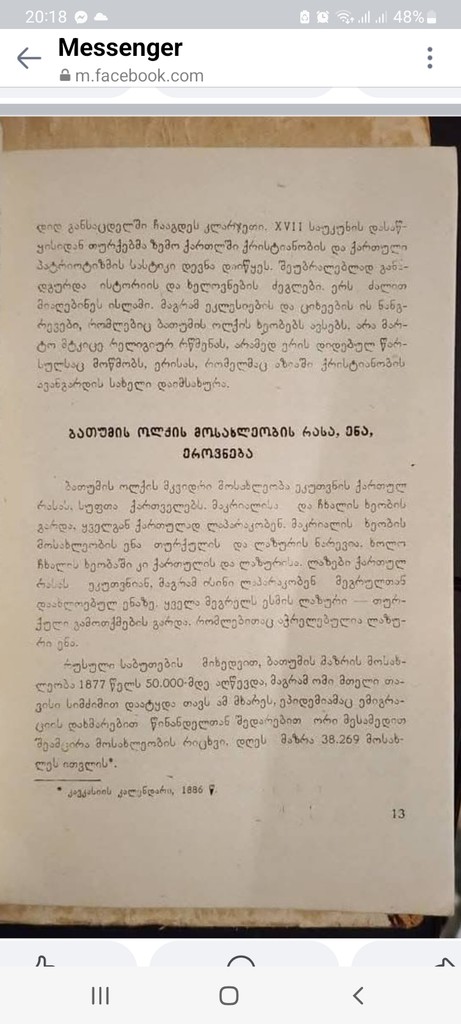 20:18
48%
Messenger
m.facebook.com
დიდ განსაცდელში ჩააგდეს კლარჯეთი. XVII საუკუნის დასაწ-
ყისიდან თურქებმა ზემო ქართლში ქრისტიანობის და ქართული
პატრიოტიზმის სასტიკი დევნა დაიწყეს. შეუბრალებლად გან-
დგურდა ისტორიის და ხელოვნების ძეგლები. ერს ძალით
მიაღებინეს ისლამი. მაგრამ ეკლესიების და ციხეების ის ნანგ-
რევები, რომლებიც ბათუმის ოლქის ხეობებს ავსებს, არა მარ-
ტო მტკიცე რელიგიურ რწმენას, არამედ ერის დიდებულ წარ-
სულსაც მოწმობს, ერისას, რომელმაც აზიაში ქრისტიანობის
ავანგარდის სახელი დაიმსახურა.
ბათუმის ოლქის მოსახლეობის რასა, ენა,
ეროვნება
ბათუმის ოლქის მკვიდრი მოსახლეობა ეკუთვნის ქართულ
რასას, სუფთა ქართველებს. მაკრიალისა და ჩხალის ხეობის
გარდა, ყველგან ქართულად ლაპარაკობენ. მაკრიალის ხეობის
მოსახლეობის ენა თურქულის და ლაზურის ნარევია, ხოლო
ჩხალის ხეობაში კი ქართულის და ლაზურისა. ლაზები ქართულ
რასას ეკუთვნიან, მაგრამ ისინი ლაპარაკობენ მეგრულთან
დაახლოებულ ენაზე. ყველა მეგრელს ესმის ლაზური — თურ-
ქული გამოთქმების გარდა, რომლებითაც აჭრელებულია ლაზუ-
რი ენა.
რუსული საბუთების მიხედვით, ბათუმის მაზრის მოსახ-
ლეობა 1877 წელს 50.000-მდე აღწევდა, მაგრამ ომი მთელი თა-
ვისი სიმძიმით დაატყდა თავს ამ მხარეს, ეპიდემიამაც ემიგრა-
ციის დახმარებით წინანდელთან შედარებით ორი მესამედით
შეამცირა მოსახლეობის რიცხვი. დღეს მაზრა 38.269 მოსახ-
ლეს ითვლის*.
* კავკასიის კალენდარი, 1886 წ.
13